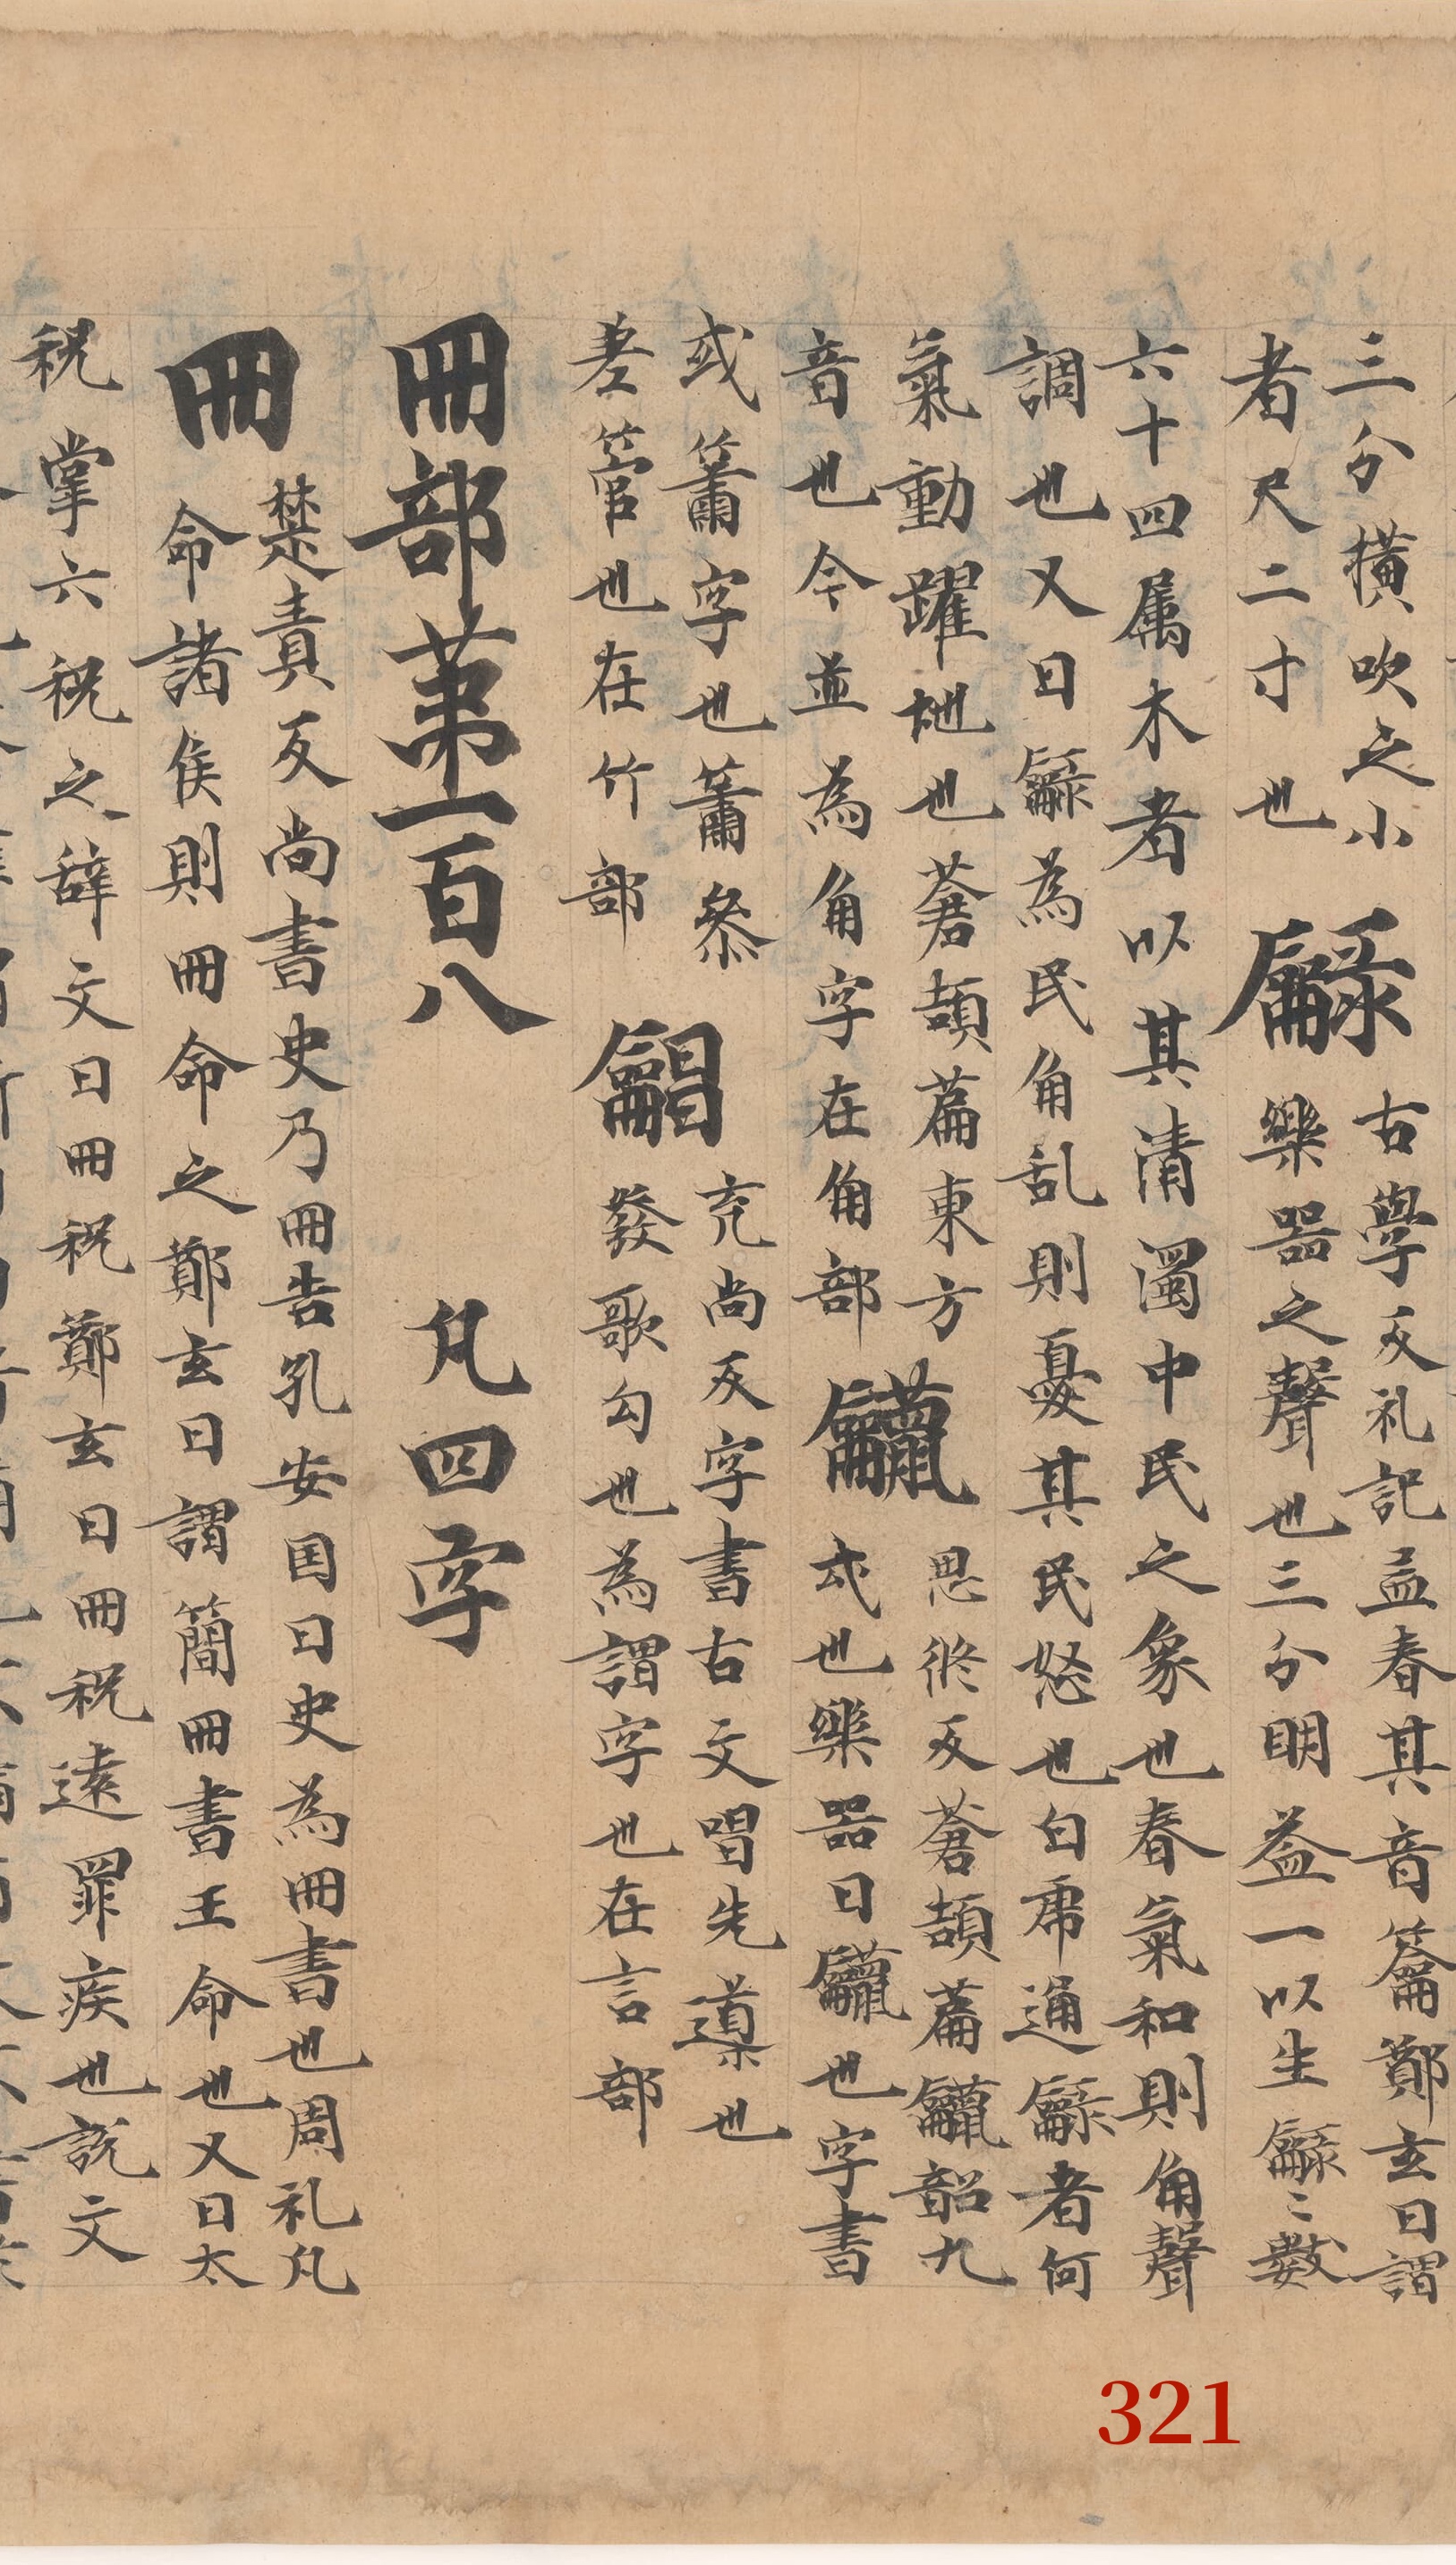 三分橫吹之小
者尺二寸也
龣
古學反礼記孟春其音籥鄭玄曰謂
樂器之聲也三分明益一以生龣〻數
六十四属木者以其清濁中民之象也春氣和則角聲
調也又曰龣為民角乱則憂其民怒也白虎通龣者何
氣動躍地也蒼頡篇東方
音也今並為角字在角部
思條反蒼頡篇韶九
成也樂器曰也字書
或簫字也簫参
差管也在竹部
充尚反字書古文唱先導也
發歌勾也為謂字也在言部
冊部苐一百八 凡四字
冊
楚責反尚書史乃冊告孔安国曰史為冊書也周礼凡
命諸侯則冊命之鄭玄曰謂簡冊書王命也又曰太
祝掌六祝之辞文曰冊祝鄭玄曰冊祝遠罪疾也說文
321